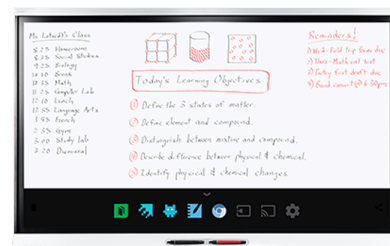 Ms Latwidt's Class
8 25 Homeroom
8 35 Social Studies
9 25 Biology
10 10 Break
10 25 Math
11 25 Computer Lab
12 10 Lunch
12 55 Language Arts
1 45 French
2 35 Gym
3 00 Study Lab
3 20 Dismissal
Today's Learning Objectives
1) Define the 3 states of matter.
2) Define element and compound.
3) Distinguish between mixture and compound.
4) Describe difference between physical & chemical
5) Identify physical & chemical changes
Remaders!
1) Wed - Field trip forms due
2) Thurs - Math unit test
3) Poetry first draft due
4) Band concert @ 6:30pm